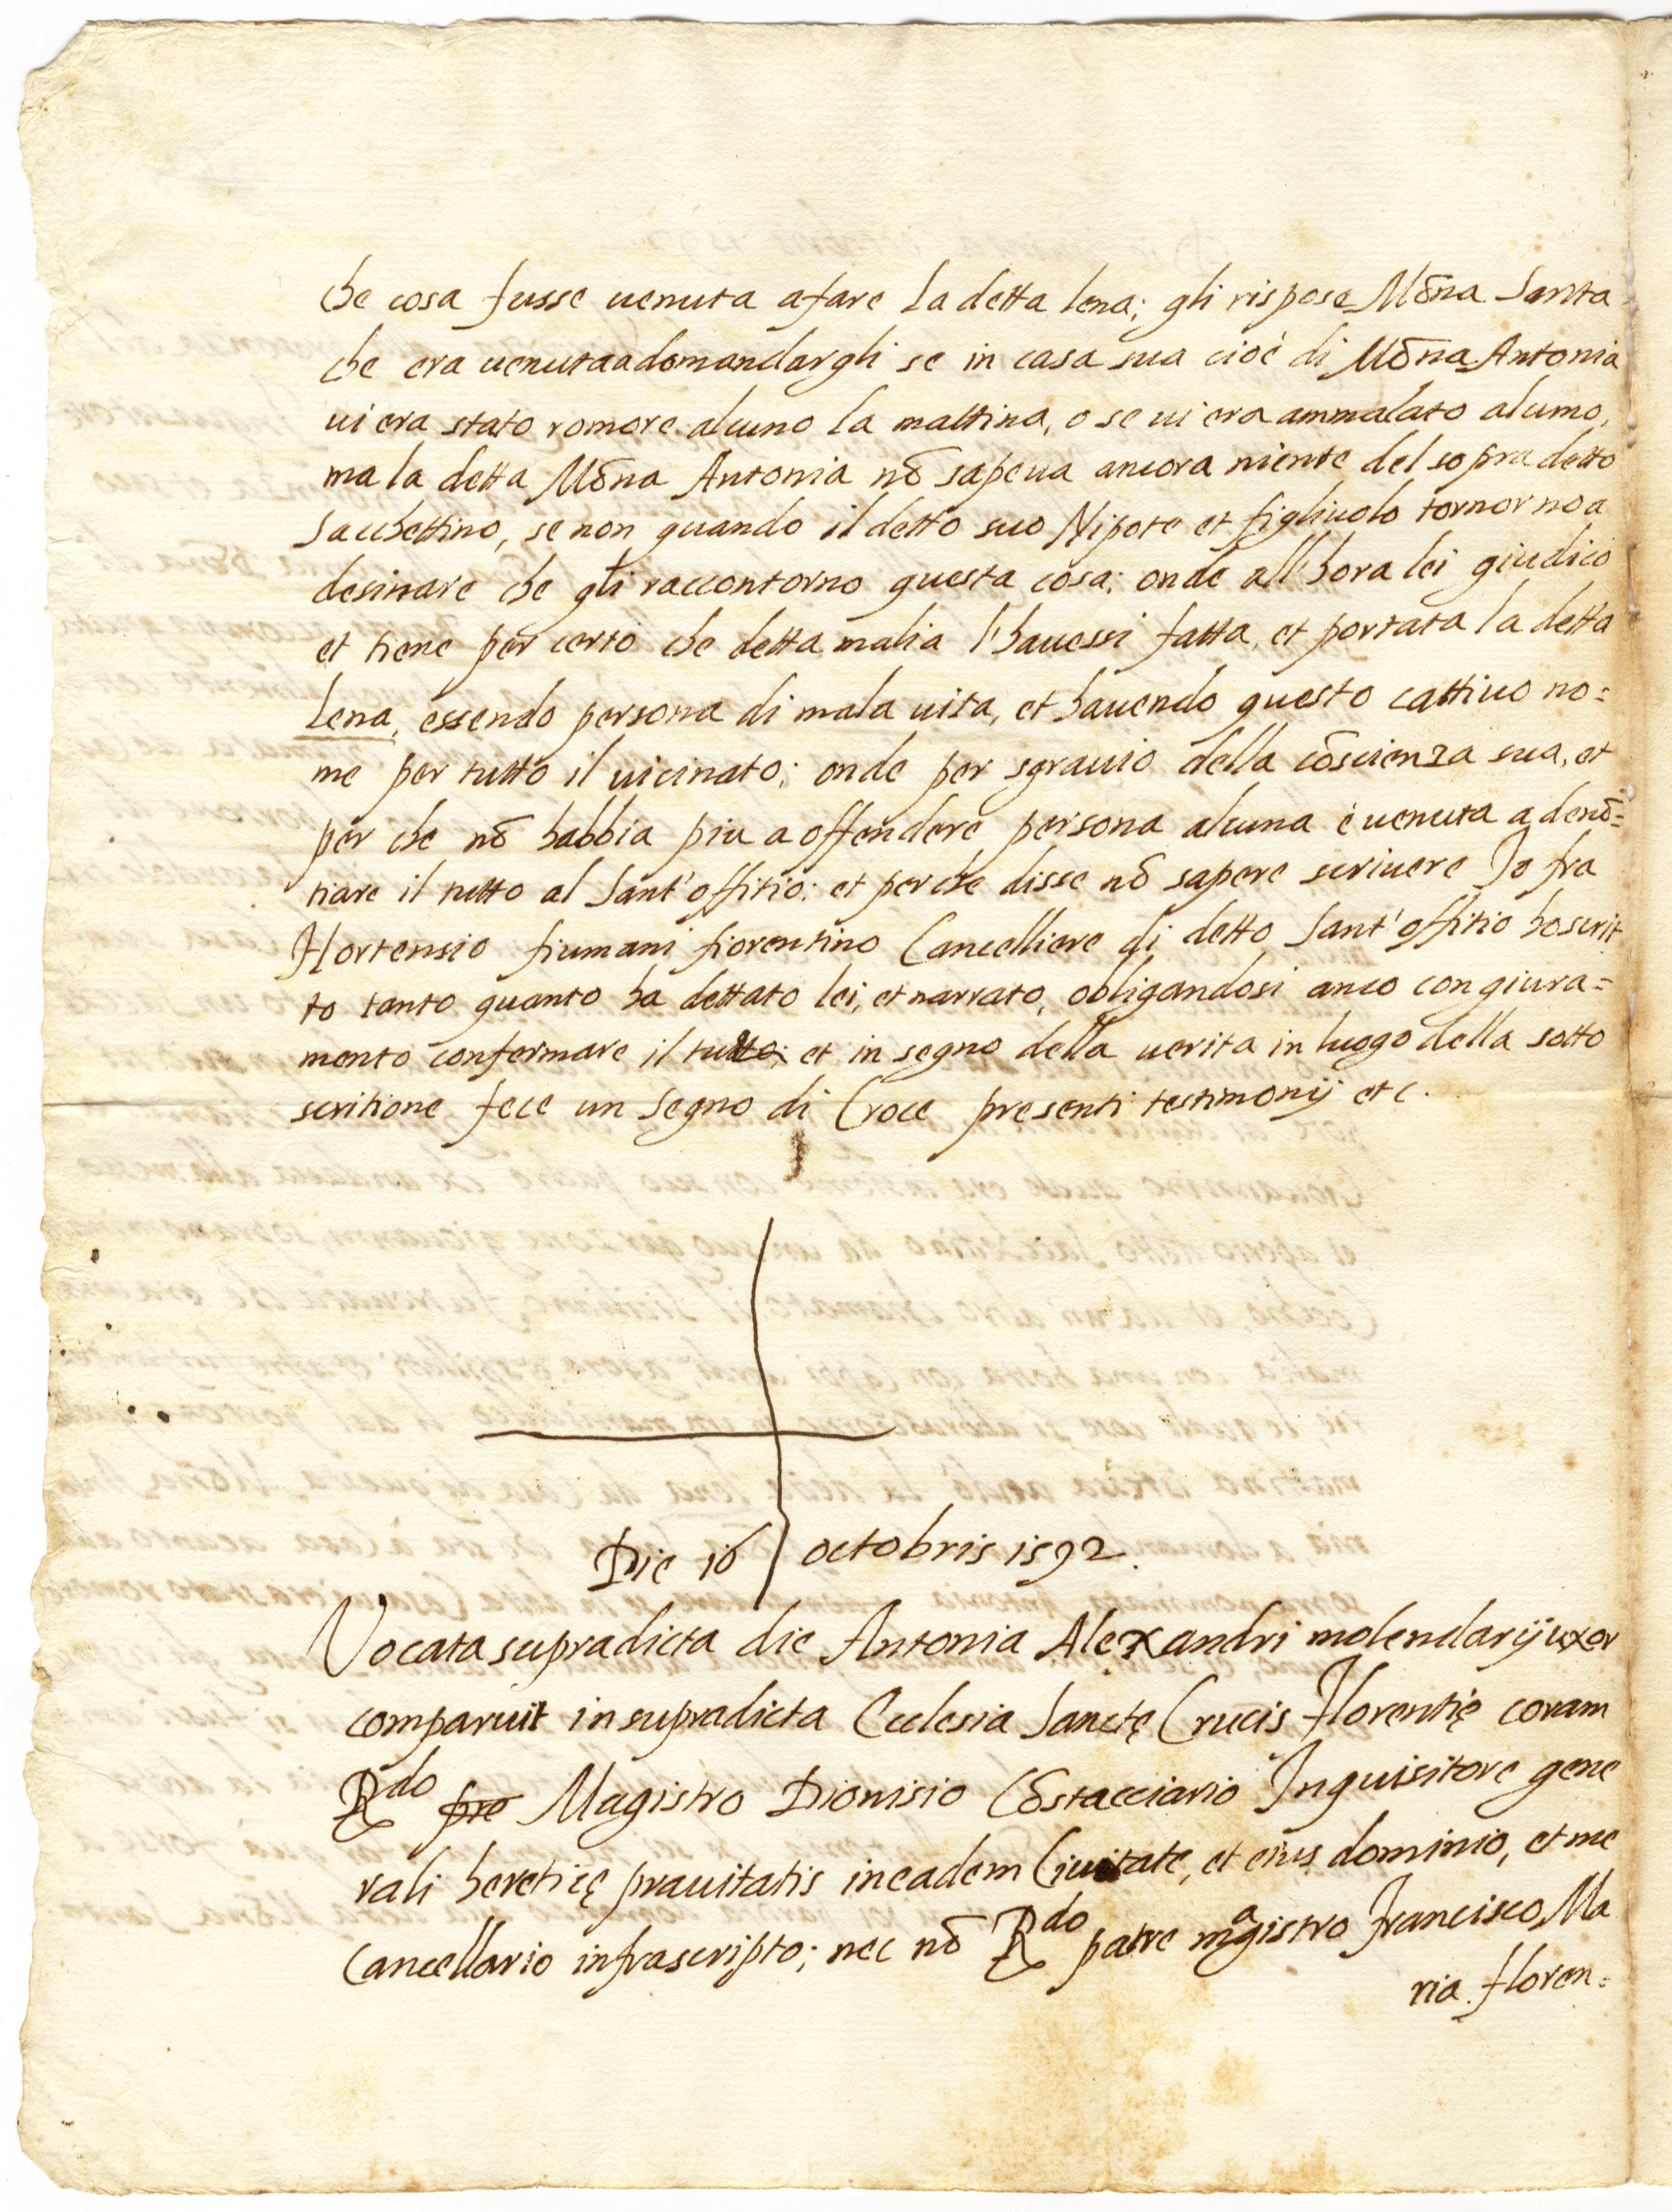 che cosa fusse uenuta afare la detta lena; gli rispose Mõna Santa
che era uenuta adomandargli se in casa sua cioè di Mõna Antonia
ui era stato romore alcuno la mattina, o se ui era ammalato alcuno,
ma la detta Mõna Antonia nõ sapeua ancora niente del sopradetto
sacchettino, se non quando il detto suo Nipote et figliuolo tornorno a
desinare che gli raccontorno questa cosa; onde all'hora lei giudicò
et tiene per certo che detta malia l'hauessi fatta, et portata la detta
Lena, essendo persona di mala uita, et hauendo questo cattiuo no=
me per tutto il uicinato; onde per sgrauio della cõscienza sua, et
per che nõ habbia piu a offendere persona alcuna è uenuta a denõ=
tiare il tutto al Sant'offitio: et perche disse nõ sapere scriuere Jo fra
Hortensio fiumani fiorentino Cancelliere di detto Sant'offitio ho scrit
to tanto quanto ha dettato lei, et narrato, obligandosi anco con giura=
mento confermare il tutto; et in segno della uerita in luogo della sotto
scritione fece un segno di Croce presenti testimonij etc.
Die 16 octobris 1592.
Vocata supradicta die Antonia Alexandri molendarij uxor
comparuit in supradicta Ecclesia Sanctę Crucis Florentię coram
Rdo fre Magistro Dionisio Cõstacciario Inquisitore gene
rali hereticę prauitatis in eadem Ciuitate, et eius dominio, et me
Cancellario infrascripto; nec nõ Rdo patre magistro Francisco Ma
ria floren=